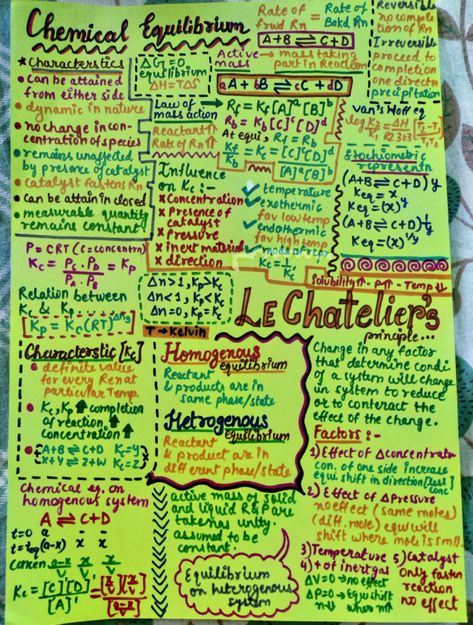 Chemical Equilibrium
Rate of frwd Rn = Rate of Bckd Rn
A+B ⇌ C+D
Reversible
no comple
tion of Rn
Irreversible
proceed to
completion
one direct
precipitation
* Characterstics
• can be attained
from either side
• dynamic in nature
• no change in con-
centration of species
• remains unaffected
by presence of catalyst
• catalyst fastens Rn
• can be attain in closed
• measurable quantity
remains constant!
ΔG=0,
equilibrium
ΔH=TΔS
Active mass → mass taking
part in Reaction
aA + bB ⇌ cC + dD
Law of
mass action
Reactant↑
Rate of Rn↑
Rf = Kf[A]ᵃ[B]ᵇ
Rb = Kb[C]ᶜ[D]ᵈ
At equi, Rf=Rb
Kf/Kb = Kc = [C]ᶜ[D]ᵈ/[A]ᵃ[B]ᵇ
Van's Hoff eq
Stochiometric
represents
(A+B ⇌ C+D)y
Keq = x
Keq=(x)ʸ
(A+B ⇌ C+D)1/y
Keq=(x)^1/y
Influence
on Kc :-
x Concentration
x Presence of
catalyst
x pressure
x inert material
x direction
✓ temperature
✓ exothermic
fav low temp
✓ endothermic
fav high temp
Solubility↑ - P↑ - Temp↓
P = CRT (C=concentrn)
Kc = Pc.PD/PA.PB = Kp
Relation between
Kc & Kp
Kp = Kc(RT)^Δng
Δn>1, Kp>Kc
Δn<1, Kp<Kc
Δn=0, Kp=Kc
T → Kelvin
LE Chatelier's
principle...
Change in any factor
that determine condi
of a system will change
in system to reduce
or to conteract the
effect of the change.
Characterstic [Kc]
• definite value
for every Rn at
particular Temp.
• Kc, Kp ↑ completion
of reaction ↑
concentration ↑
• A+B ⇌ C+D Kc=Y
x+y ⇌ z+w Kc=Z
Homogenous
equilibrium
Reactant
& products are in
same phase/state
Hetrogenous
equilibrium
Reactant
& product are in
different phase/state
Factors :-
1) Effect of Δconcentratn
con. of one side increase
equi shift in direction[less] conc
2) Effect of Δpressure
no effect (same moles)
(diff. mole) equi will
shift where mole is small
3) Temperature
4) + of inert gas
ΔV=0→no effect
ΔP=0→Equi shift
5) Catalyst
Only faster
reaction
no effect
Chemical eq. on
homogenous system
A ⇌ C+D
t=0 a - -
(a-x) x x
Concen a-x/V x/V x/V
Kc = [C]'[D]'/[A]' = [x/V][x/V]/[a-x/V]
active mass of solid
and liquid R&P are
taken as unity.
assumed to be
constant.
Equilibrium
on heterogenous
system